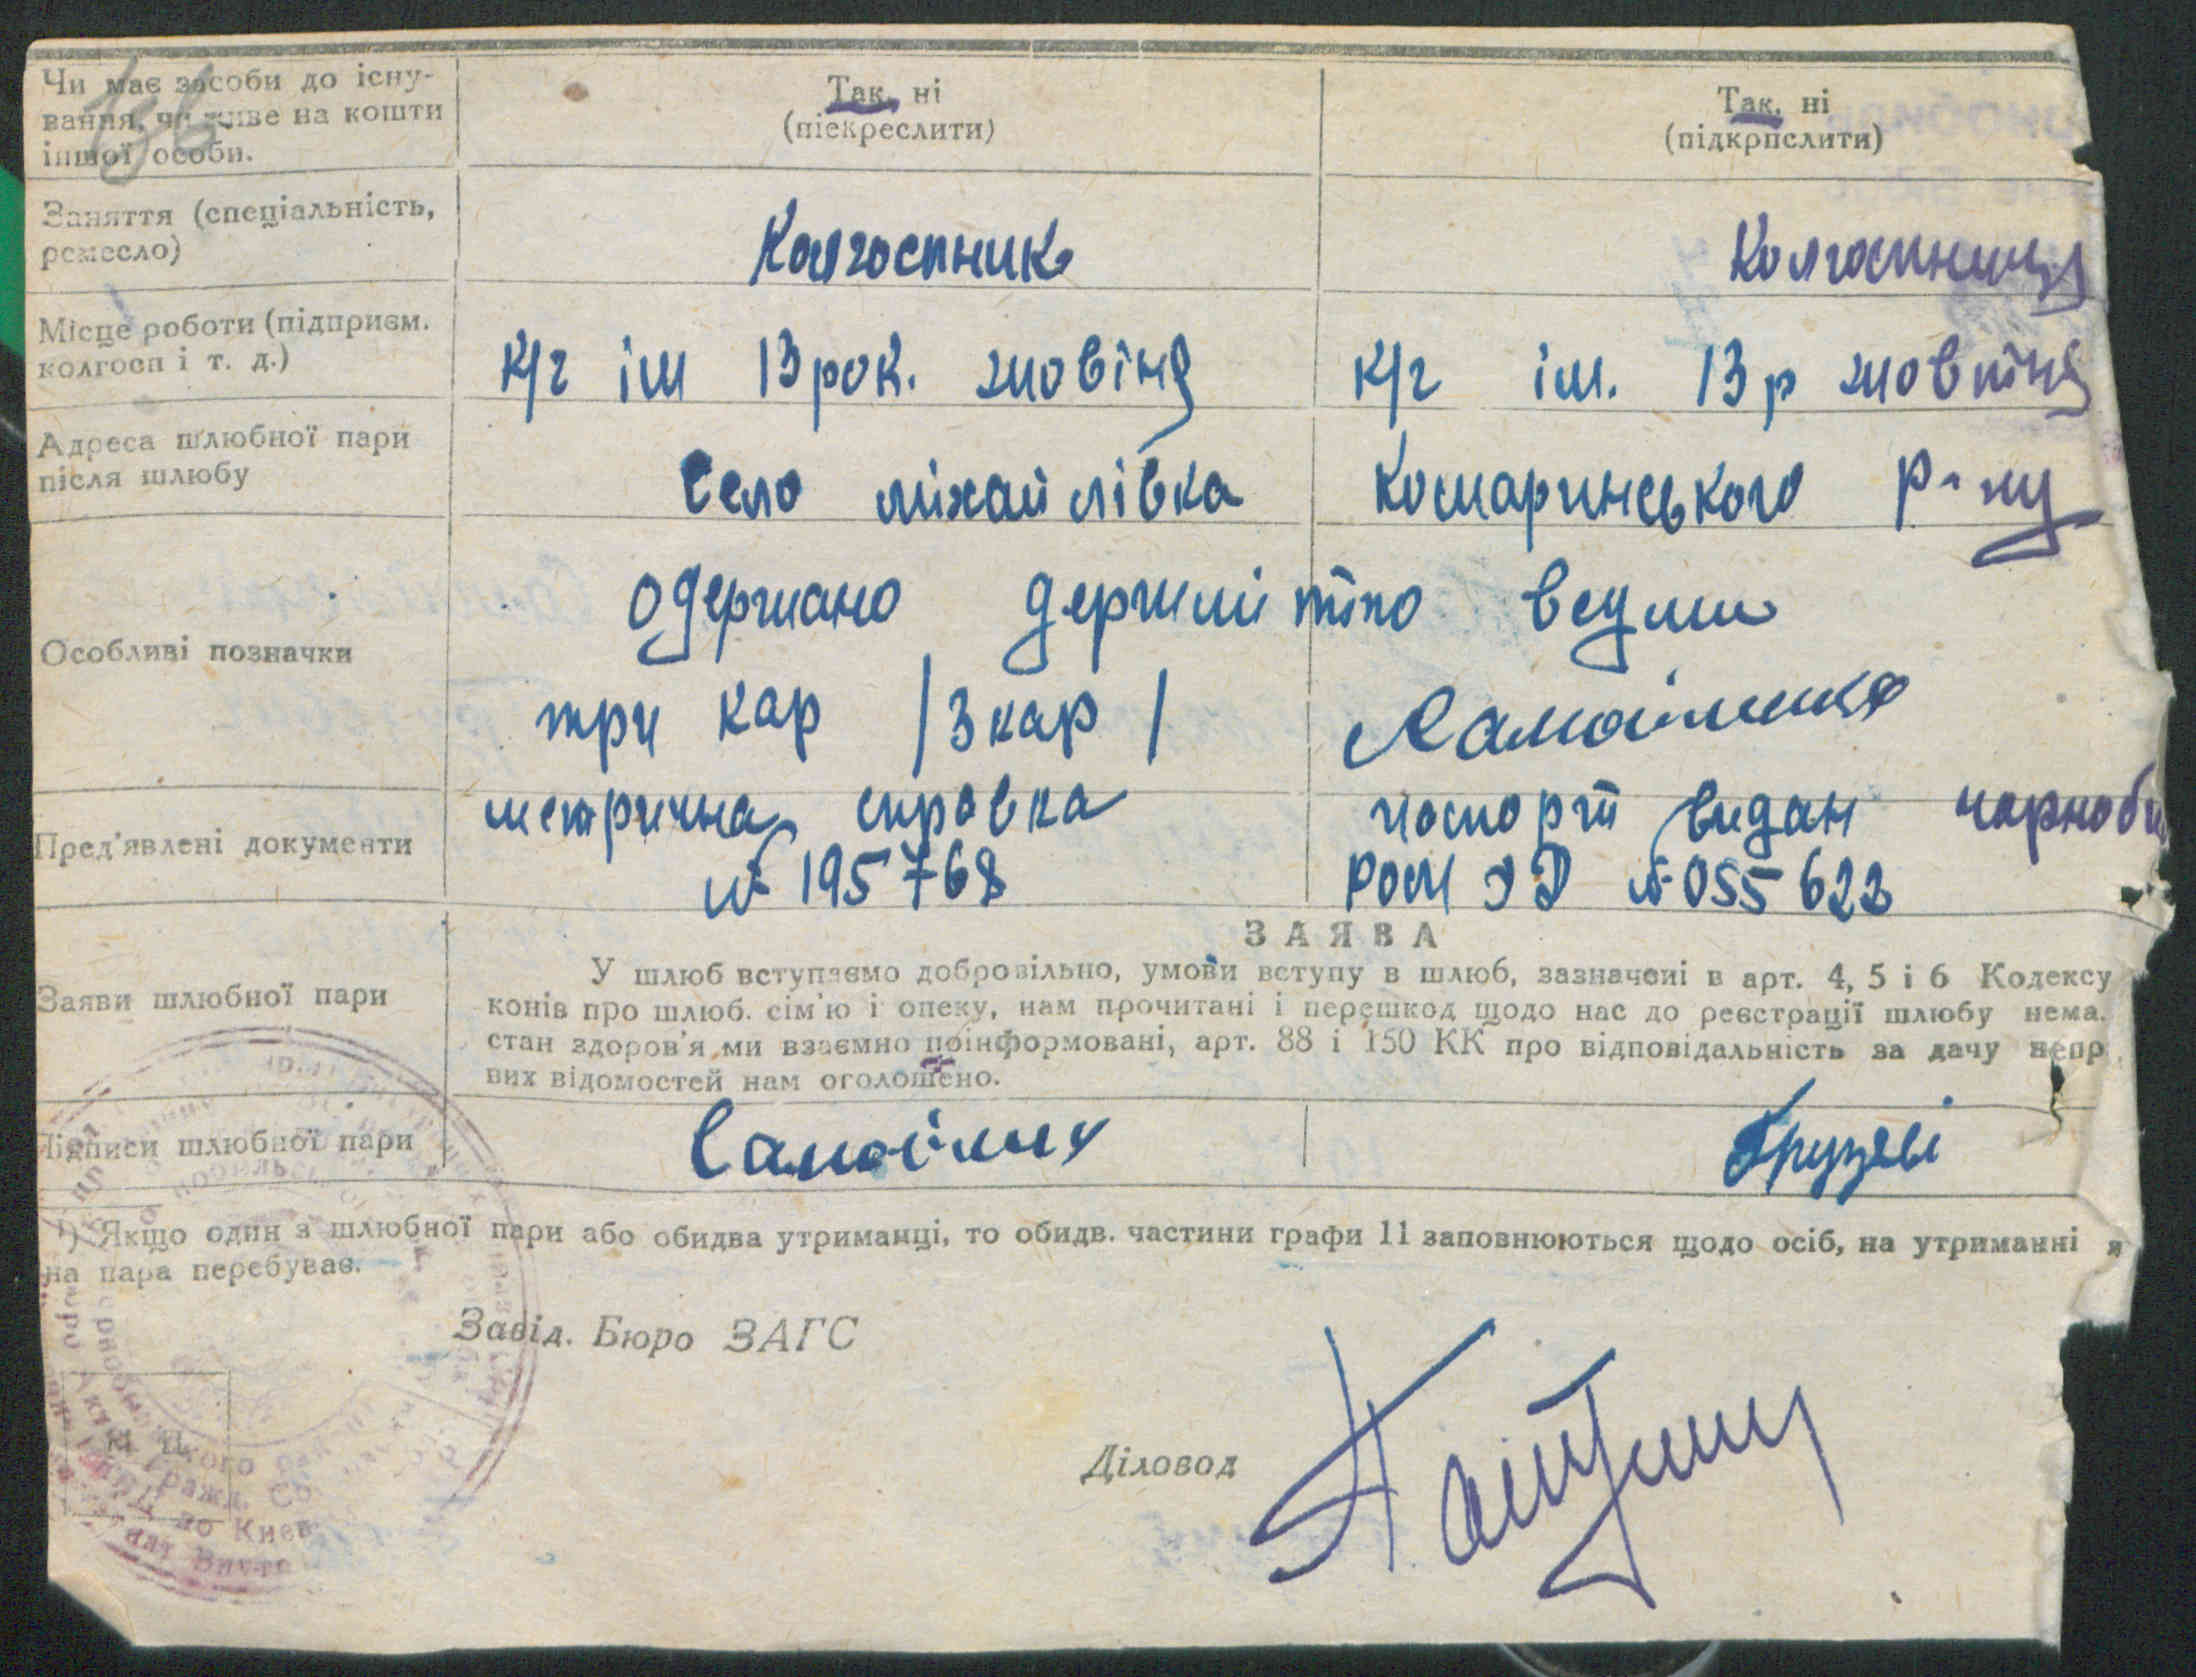 Чи має засоби до існу-
вання, чи живе на кошти
іншої особи.
Так, ні
(піекреслити)
Так, ні
(підкрпслити)
Заняття (спеціальність,
ремесло)
Колгоспник
Колгоспниця
Місце роботи (підприєм.
колгосп і т. д.)
к/г ім 13 рок. жовтня
к/г ім. 13 р жовтня
Адреса шлюбної пари
після шлюбу
Село міхайлівка
Комаринського р-ну
Особливі позначки
одержано
три кар /3 кар/
Пред'явлені документи
метрична справка
№ 195768
паспорт видан чорноби
РОМ № 055623
Заяви шлюбної пари
ЗАЯВА
У шлюб вступаємо добровільно, умови вступу в шлюб, зазначені в арт. 4, 5 і 6 Кодексу
конів про шлюб. сім'ю і опеку, нам прочитані і перешкод щодо нас до реєстрації шлюбу нема.
стан здоров'я ми взаємно поінформовані, арт. 88 і 150 КК про відповідальність за дачу непр
вих відомостей нам оголошено.
Підписи шлюбної пари
*) Якщо один з шлюбної пари або обидва утриманці, то обидв. частини графи 11 заповнюються щодо осіб, на утриманні я
на пара перебуває.
Завід. Бюро ЗАГС
Діловод
М. П.